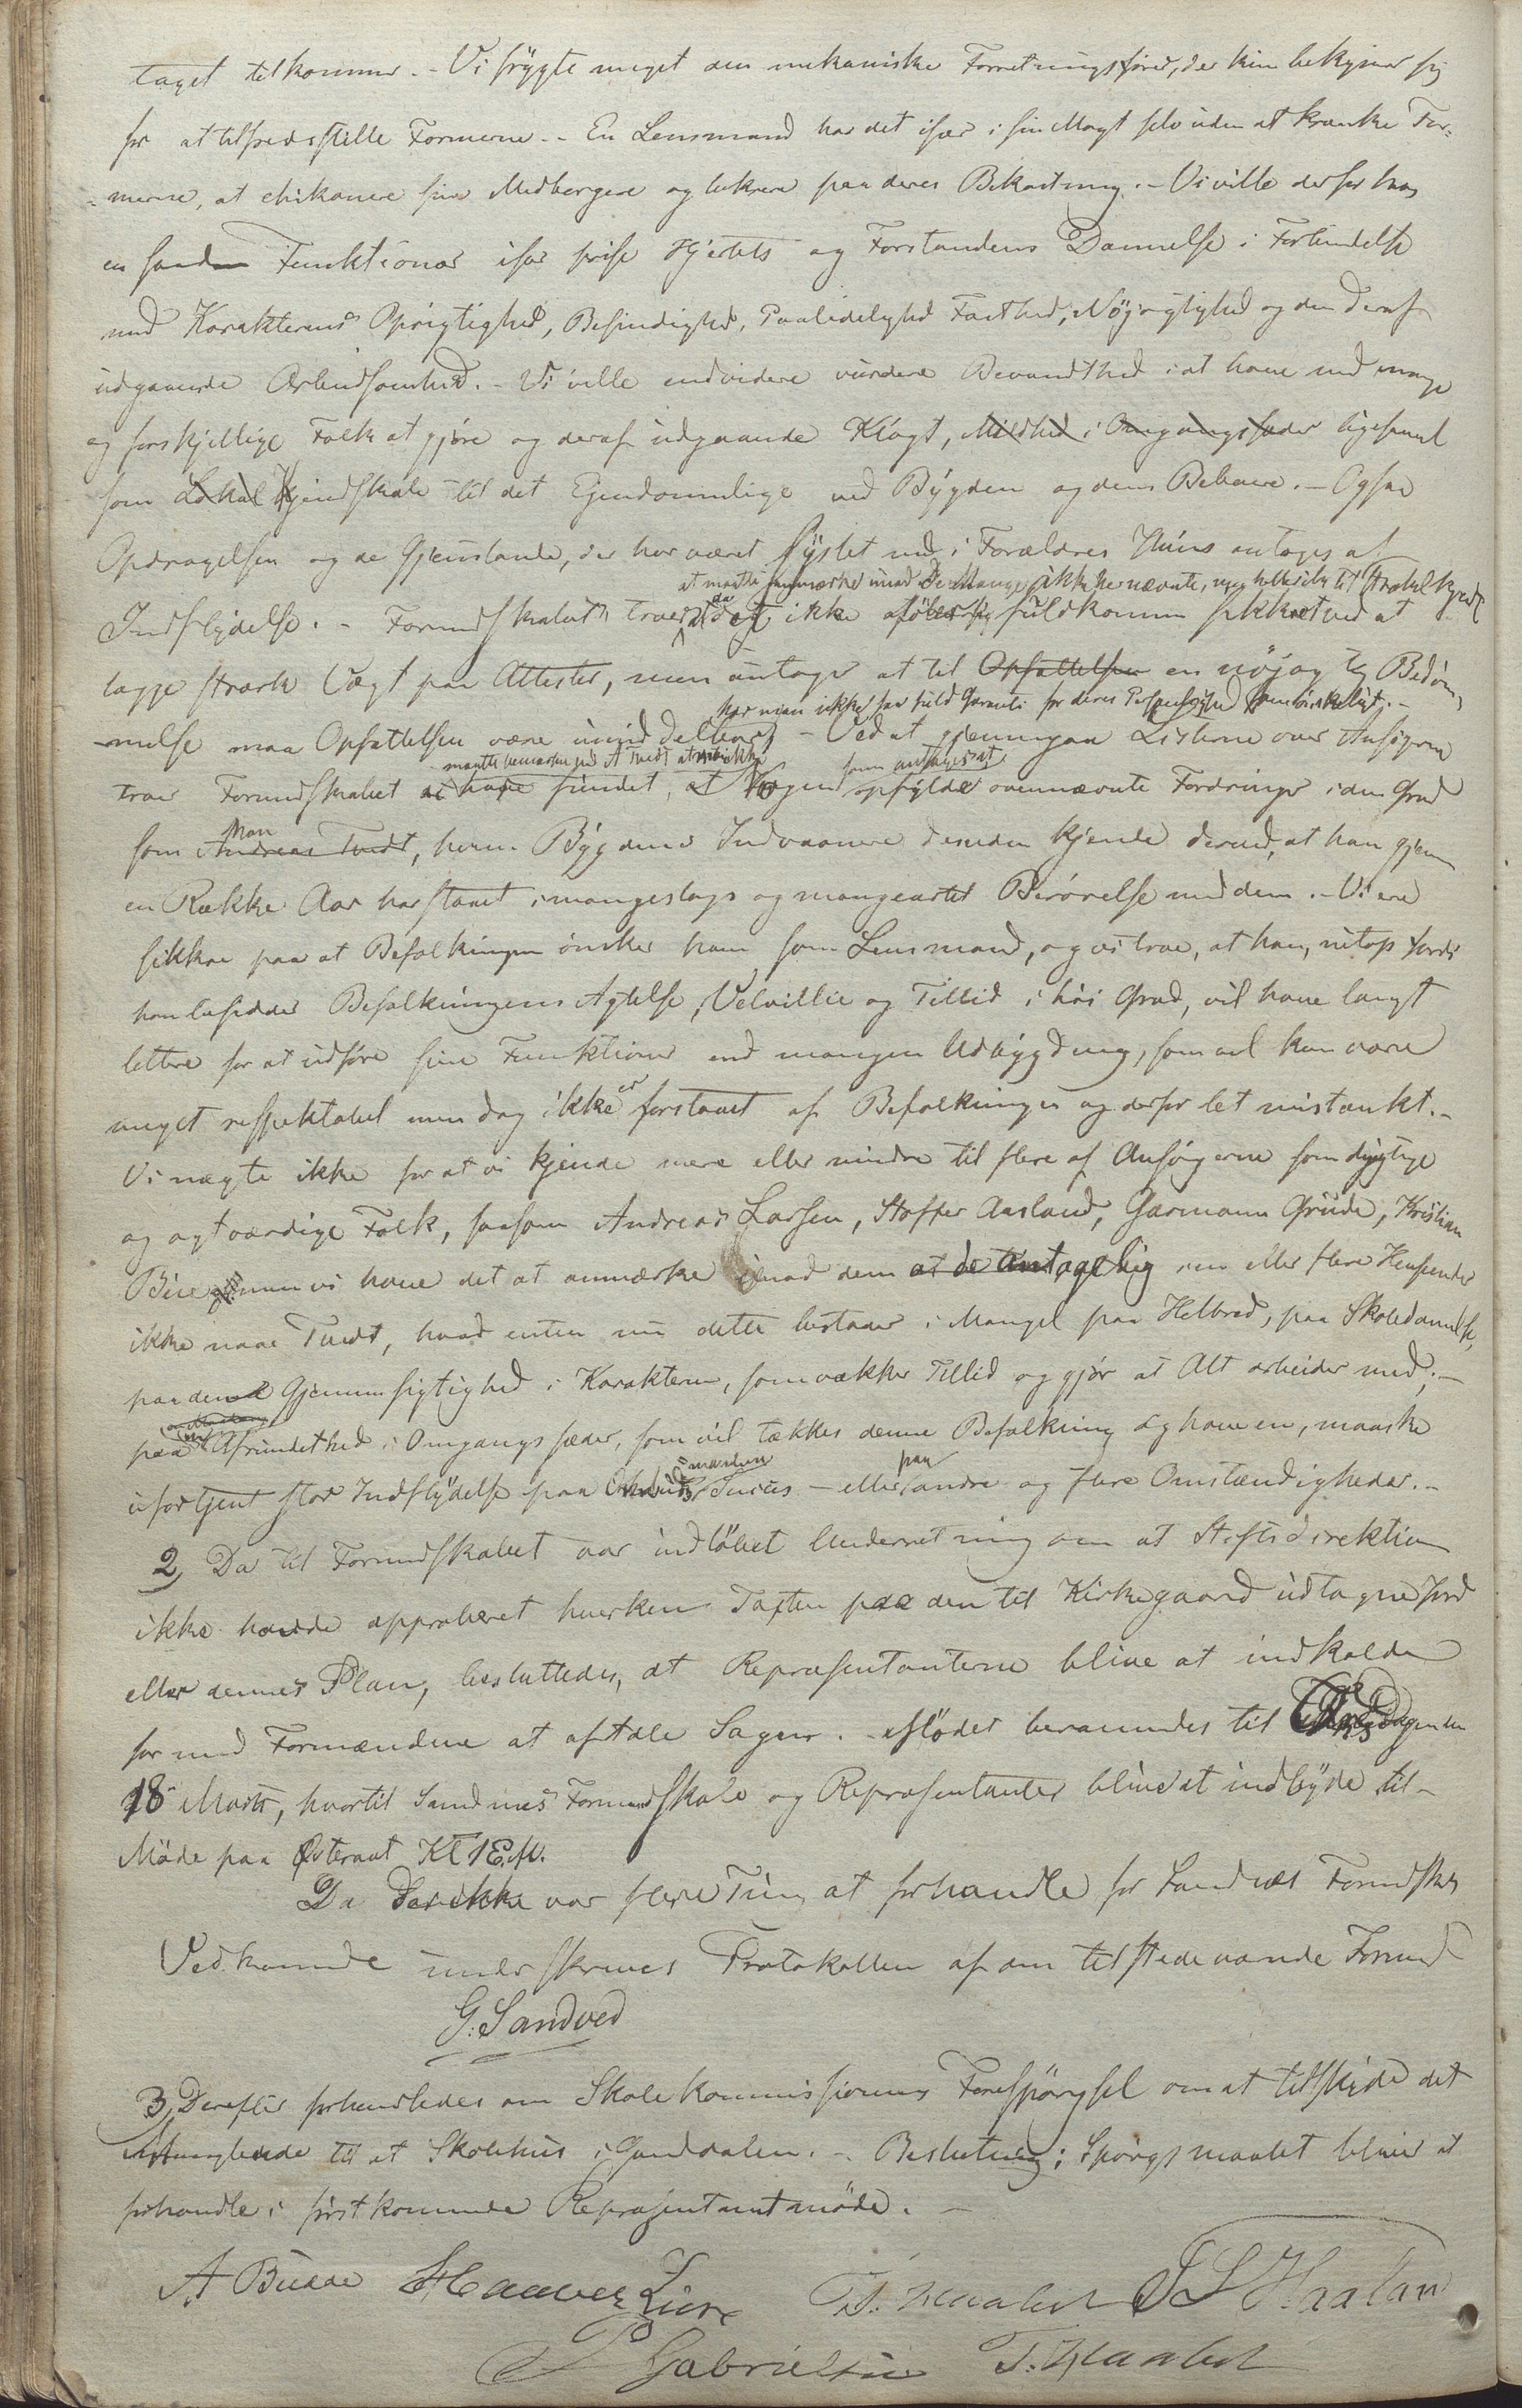 taget tilkommer. - Vi frygte meget den mekaniske Forretningsfører, der kun bekymrer sig
for at tilfredsstille Formerne. - En Lensmand har det især i sin Magt selv uden at krænke For=
=merne, at chikanere sine Medborgere og lukrere paa deres Bekostning. - Vi ville derfor hos
en saadan Funktionær især prise Hjertets og Forstandens Dannelse i Forbindelse
med Karakterens Oprigtighed, Besindighed, Paalidelighed Fasthed, Nøjagtighed og den deraf
udgaaende Arbeidsomhed. - Vi ville endvidere vurdere Bevandthed i at have med mange
og forskjellige Folk at gjøre og deraf udgaaende Klogt, Mildhed i Omgangssæder ligesaavel
som Lokal Kjendskab til det Ejendommelige ved Bygden og dens Beboere. - Ogsaa
Opdragelsen og de Gjenstande, der har været syslet med i Forældres Huus antages af
at maatte anmærke imod de Mange ikke her nævnte, men
Indflydelse. - Formandskabet troer at det ikke føler sig fuldkommen sikkret ved at
lægge stærk Vægt paa Attester, men antager at til Opfattelsen en nøjagtig Bedøm=
har man ikke saa fuld Garanti for deres
=melse maa Opfattelsen være umiddelbar - Ved at gjennemgaa Listerne over Ansøgerne
maatte bemærke ved A Tvedt at ikke som antages at
troer Formandskabet at have fundet, at Nogen opfylder ovennævnte Fordringer i den Grad
Man
som Andreas Tvedt, hvem Bygdens Indvaanere desuden kjende derved, at han gjennem
en Række Aar har staaet i mangeslags og mangeartet Berørelse med dem. - Vi ere
sikkre paa at Befolkningen ønsker ham som Lensmand, og vi troe, at han, netop fordi
han besidder Befolkningens Agtelse, Velvillie og Tillid i høi Grad, vil have langt
lettere for at udføre sine Funktioner end mangen Udbygding, som vel kan være
meget respektabel men dog ikke er forstaaet af Befolkningen og derfor let mistænkt. -
Vi nægte ikke for at vi kjende mere eller mindre til flere af Ansøgerne som dygtige
og agtværdige Folk, saasom Andreas Larsen, Stoffer Aasland, Garmann Grude, Kristian
Bue men vi have det at anmærke imod dem at de Antagelig i en eller flere Henseender
ikke naae Tvedt, hvad enten nu dette bestaaer i Mangel paa Helbred, paa Skoledannelse,
paa den Gjennemsigtighed i Karakteren, som vækker Tillid og gjør at Alt arbeider med; -
paa Afrundethed i Omgangssæder, som vil tækkes denne Befolkning og have en, maaske
ufortjent stor Indflydelse paa Ombudsmandens Succes - eller paa andre og flere Omstændigheder. -
2, Da til Formandskabet var indløbet Underretning om at Stiftsdirektionen
ikke havde approberet hverken Taxten paa den til Kirkegaard udtagne Jord
eller dennes Plan, besluttedes, at Repræsentanterne blive at indkalde
for med Formændene at aftale Sagen. - Mødet berammedes til Tirsdagen den
18 Marts, hvortil Sandnes Formandskab og Repræsentanter bliver at indbyde til -
Møde paa Østeraat Kl 1 E.M.
Da der ikke var flere Ting at forhandle for Sandnæs Formandskabs
Vedkommende underskreves Protokollen af den tilstedeværende Formand
G. Sandved
3, Derefter forhandledes om Skolekommissionens Forespørgsel om at tilskyde det
Manglende til et Skolehus i Ganddalen. - Beslutning: Spørgsmaalet bliver at
forhandle i førstkommende Repræsentantmøde. -
A Buaae H Haaver Lura T. Haabet J S Haaland
P Gabrielsen T. Haabet